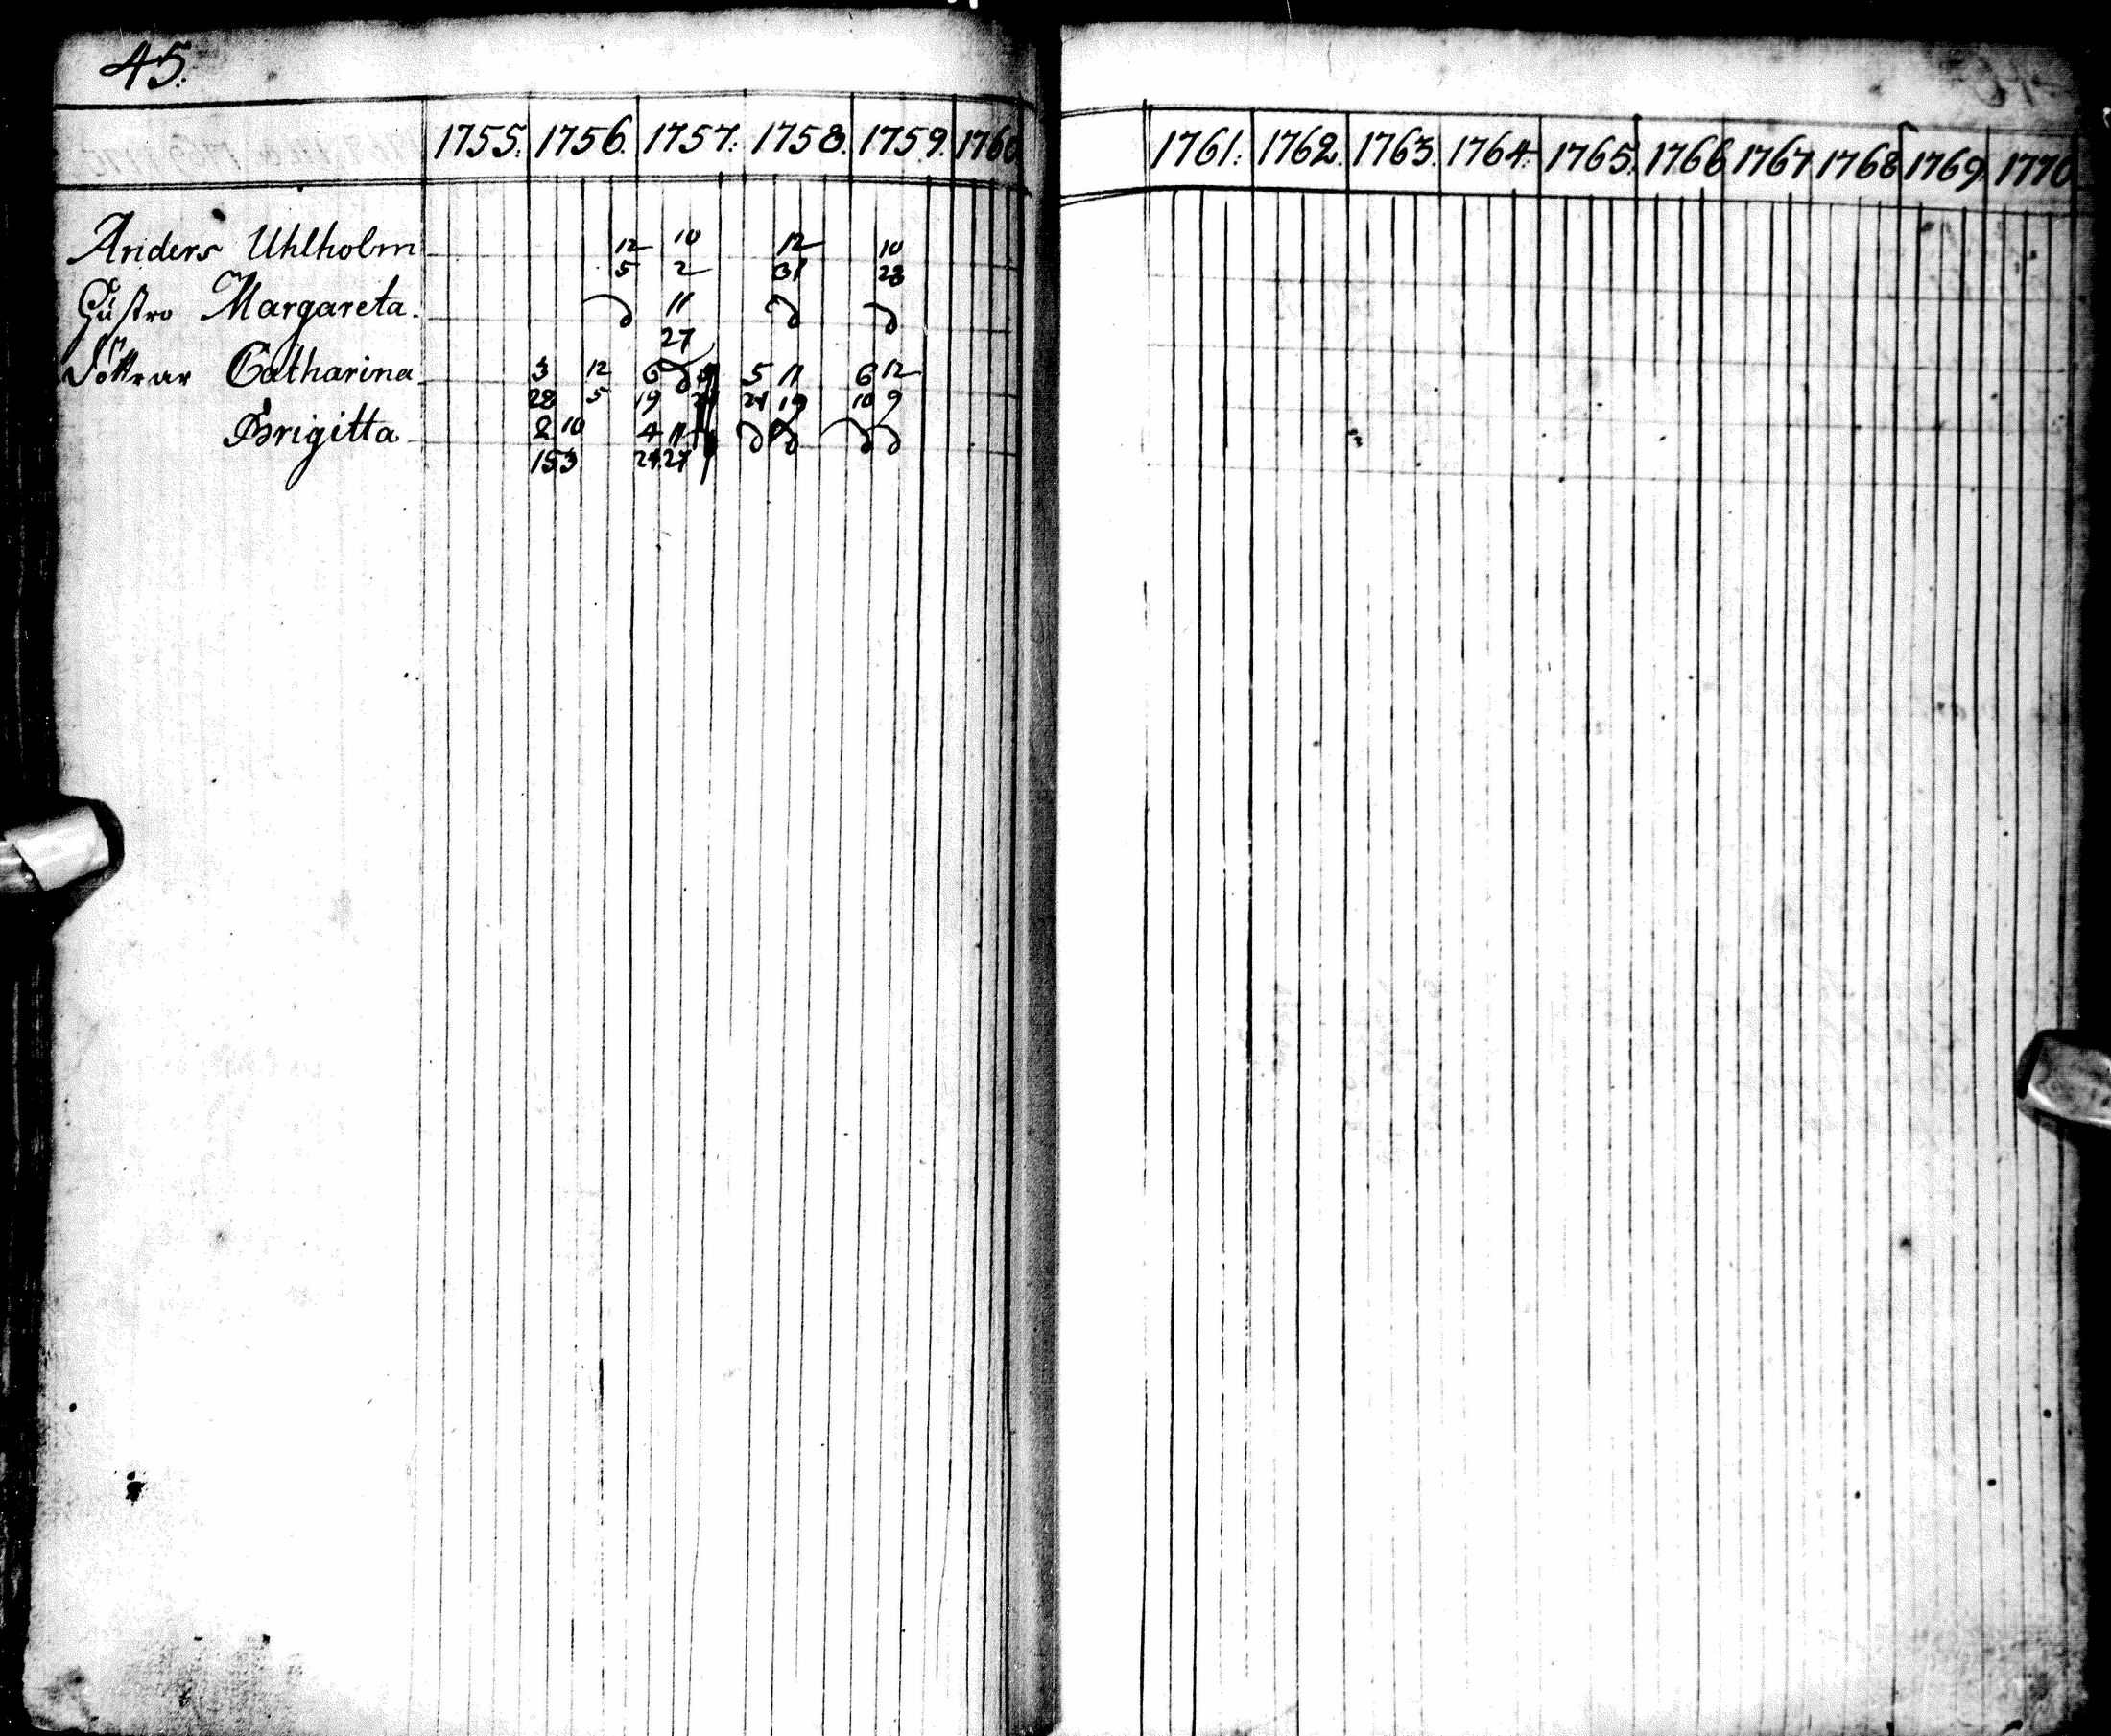 45.
1755. 1756. 1757. 1758. 1759. 1760 1761. 1762. 1763. 1764. 1765. 1766 1767 1768 1769. 1770
Anders Uhlholm 12 10 12 10
5 2 31 28
Hustro Margareta. 11
27
Döttrar Catharina 3 12 6 5 11 6 12
28 5 19 21 19 10 9
Brigitta 2 10 4 11
15 3 24 27